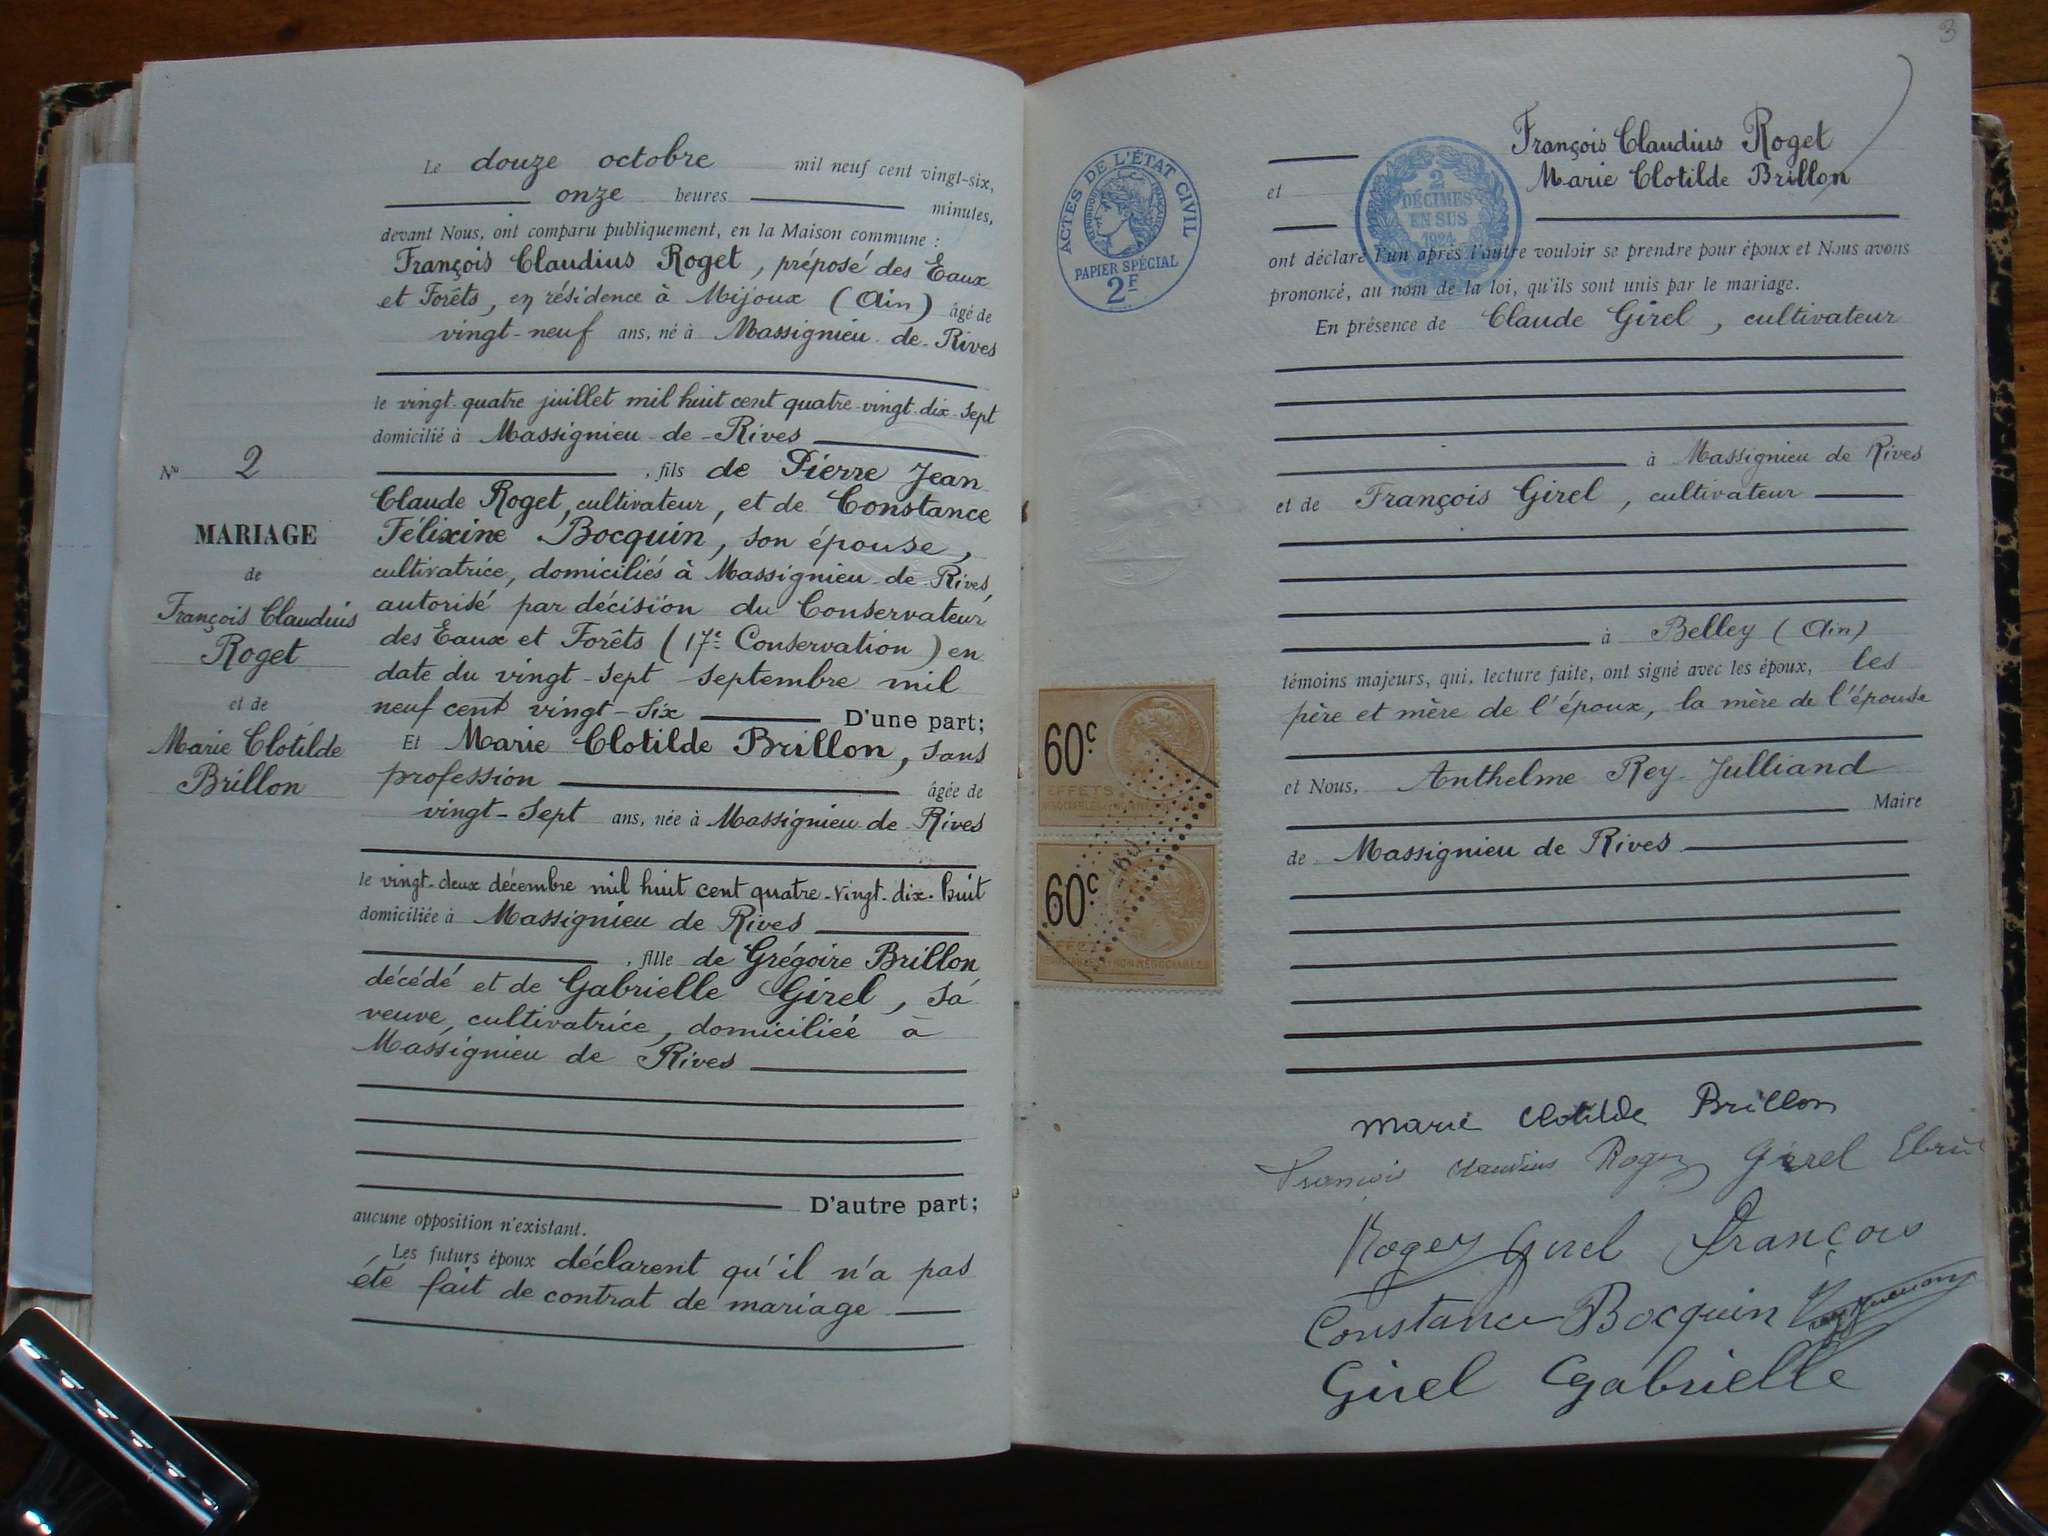 Le douze octobre mil neuf cent vingt-six,
onze heures minutes,
devant Nous, ont comparu publiquement, en la Maison commune :
François Claudius Roget, préposé des Eaux
et Forêts, en résidence à Mijoux (Ain) âgé de
vingt-neuf ans, né à Massignieu-de-Rives
le vingt-quatre juillet mil huit cent quatre-vingt-dix-sept
domicilié à Massignieu-de-Rives
, fils de Pierre Jean
Claude Roget, cultivateur, et de Constance
Félixine Bocquin, son épouse,
cultivatrice, domiciliés à Massignieu-de-Rives,
autorisé par décision du Conservateur
des Eaux et Forêts (17e Conservation) en
date du vingt-sept septembre mil
neuf cent vingt-six D'une part;
Et Marie Clotilde Brillon, sans
profession âgée de
vingt-sept ans, née à Massignieu-de-Rives
le vingt-deux décembre mil huit cent quatre-vingt-dix-huit
domiciliée à Massignieu de Rives
, fille de Grégoire Brillon
décédé et de Gabrielle Girel, sa
veuve, cultivatrice, domiciliée à
Massignieu de Rives
D'autre part;
aucune opposition n'existant.
Les futurs époux déclarent qu'il n'a pas
été fait de contrat de mariage
No 2
MARIAGE
de
François Claudius
Roget
et de
Marie Clotilde
Brillon
3
François Claudius Roget
et Marie Clotilde Brillon
ont déclaré l'un après l'autre vouloir se prendre pour époux et Nous avons
prononcé, au nom de la loi, qu'ils sont unis par le mariage.
En présence de Claude Girel, cultivateur
à Massignieu de Rives
et de François Girel, cultivateur
à Belley (Ain)
témoins majeurs, qui, lecture faite, ont signé avec les époux, les
père et mère de l'époux, la mère de l'épouse
et Nous, Anthelme Rey-Julliand
Maire
de Massignieu de Rives
Marie Clotilde Brillon
François Claudius Roget Girel
Roget Girel François
Constance Bocquin
Girel Gabrielle
ACTES DE L'ÉTAT CIVIL
PAPIER SPÉCIAL
2F
2
DÉCIMES
EN SUS
1924
60c
EFFETS
60c
EFFETS